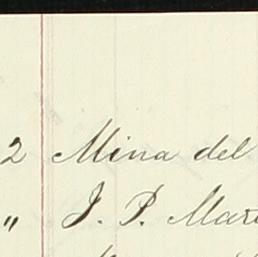 2 Mina del
" J. P. Mar